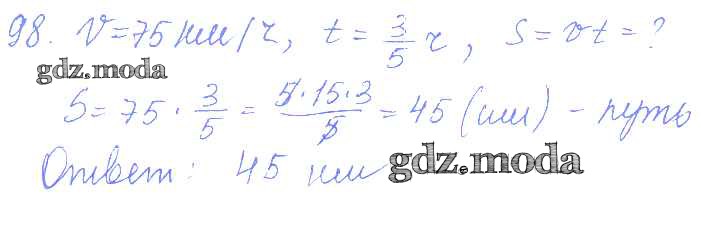 98. V=75 км/ч, t = 3/5 ч, S = vt = ?
gdz.moda
S = 75 · 3/5 = 5·15·3/5 = 45 (км) - путь
Ответ: 45 км gdz.moda